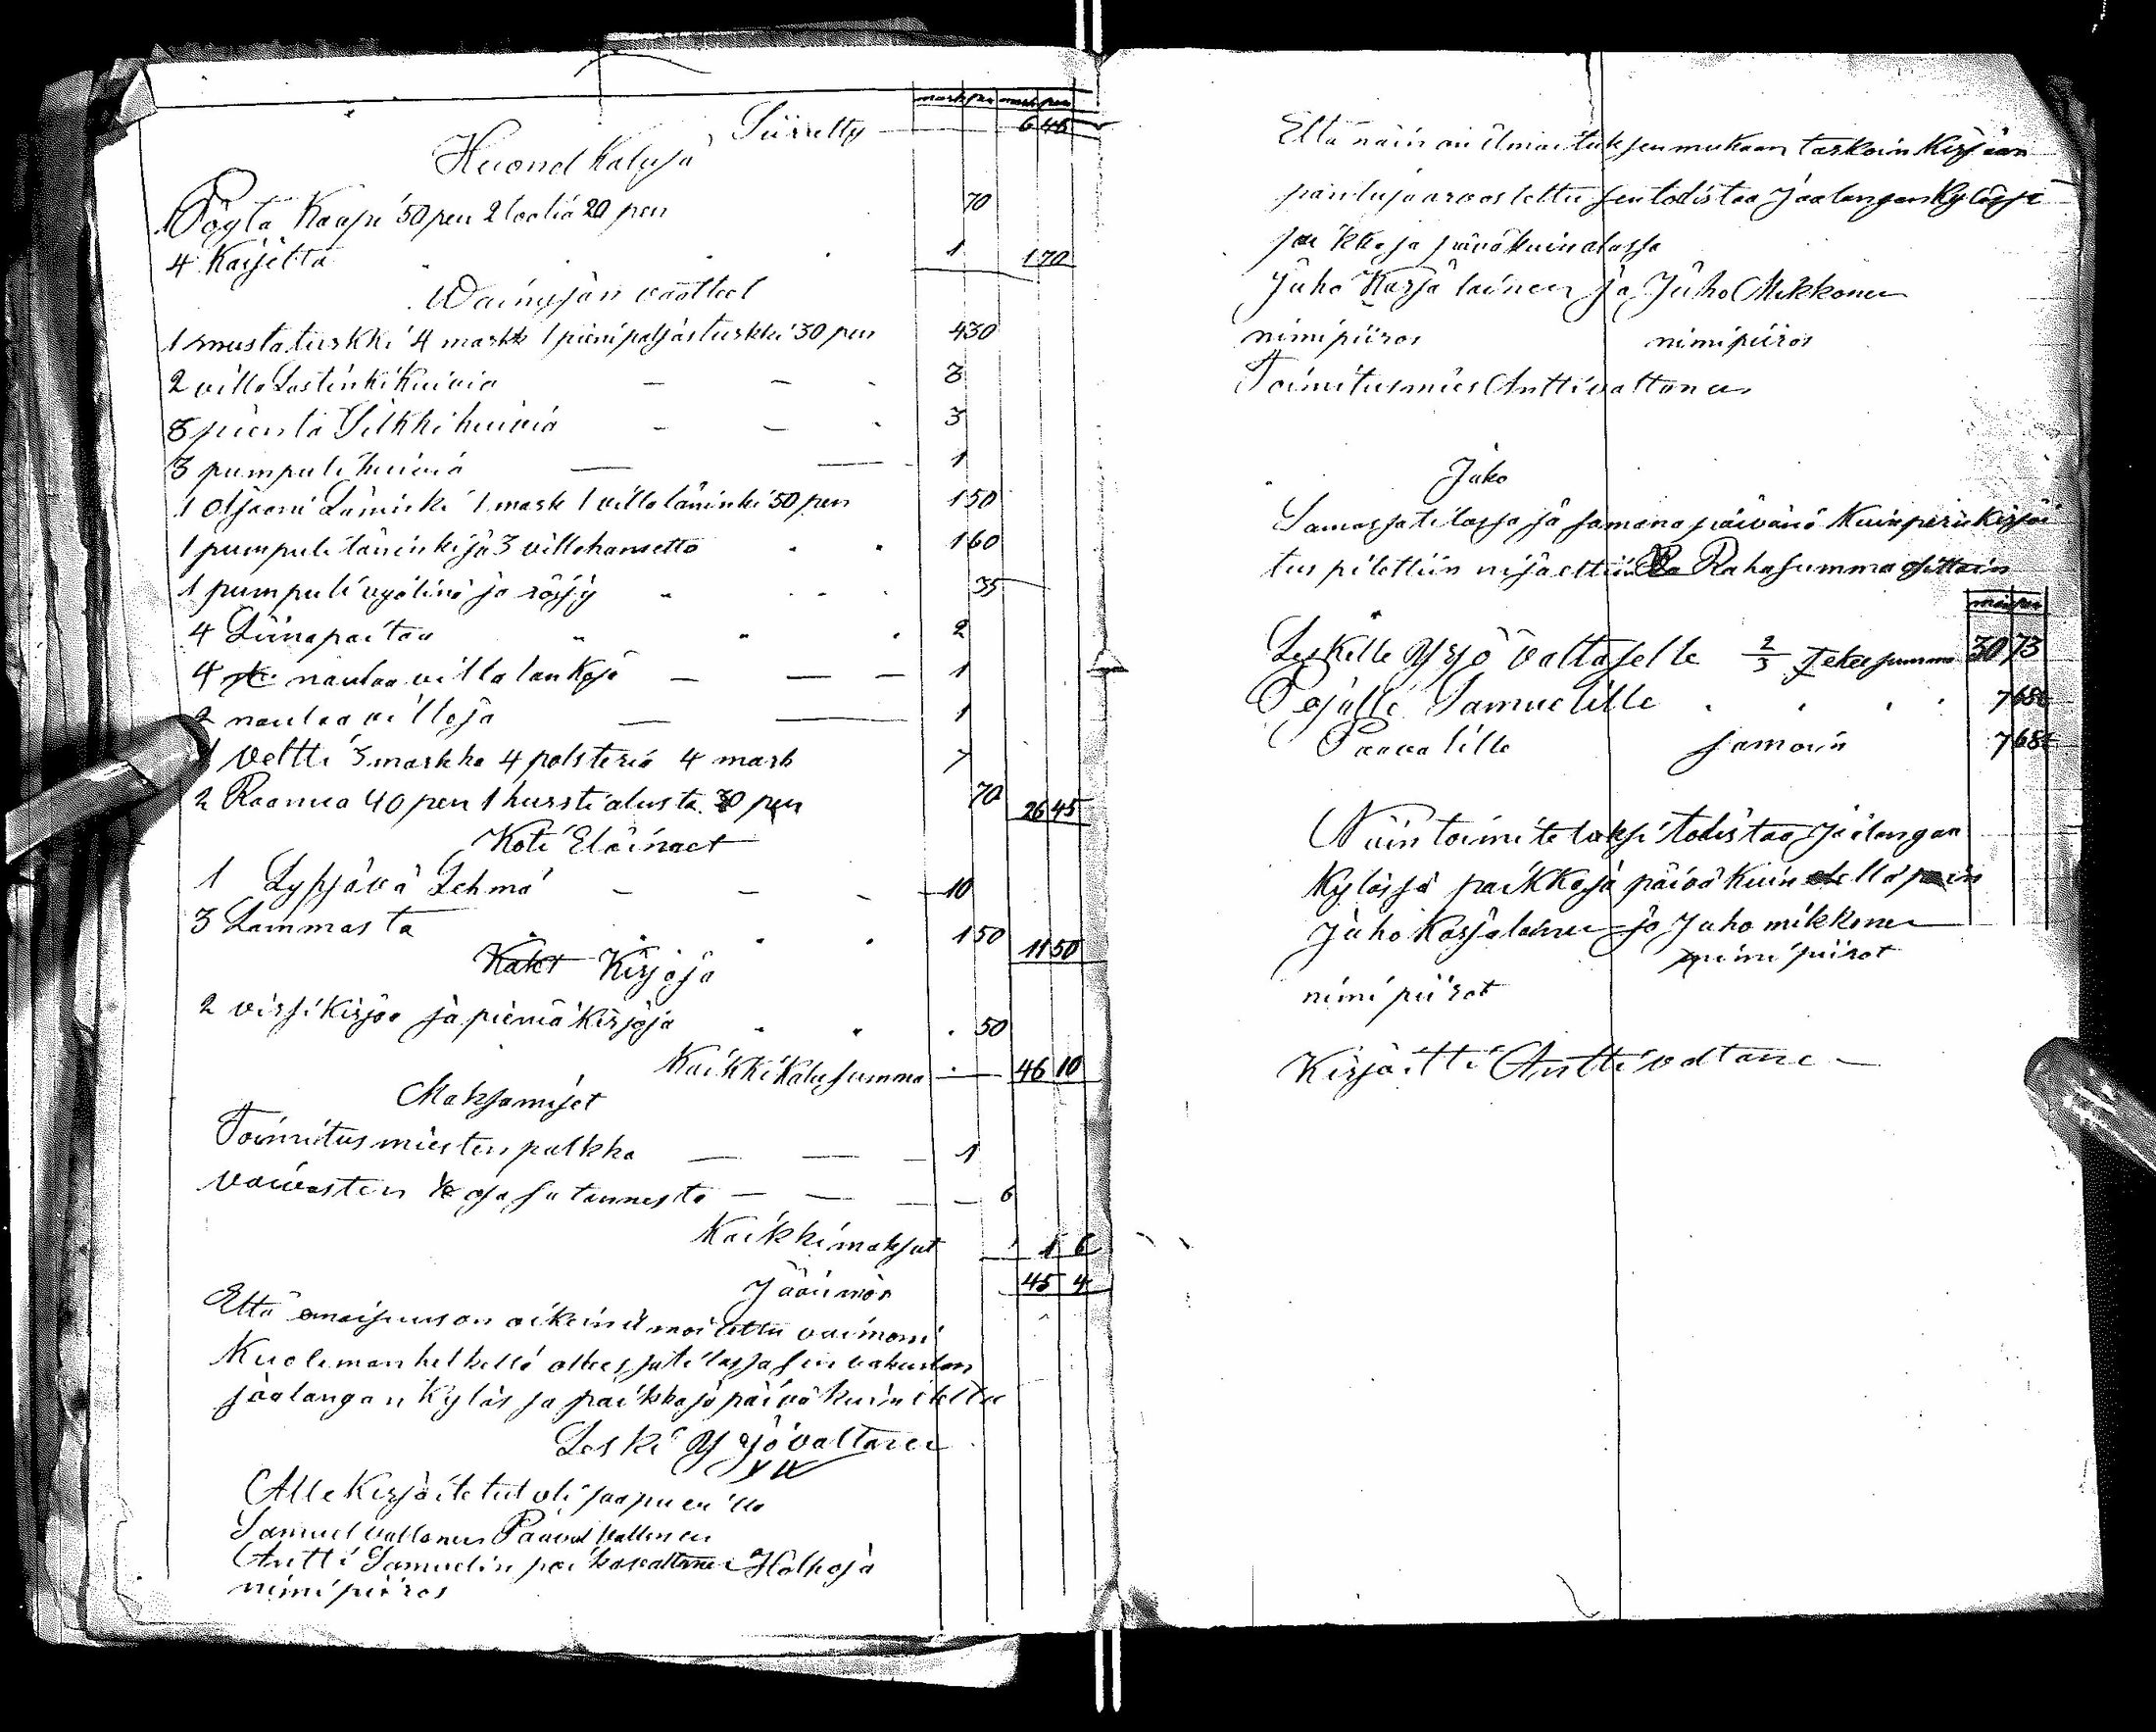 mark pen mark pen
Siirretty 6 45
Huond kaluja
1 Pöytä Kaapi 50 pen 2 toolia 20 pen 70
4 Kaisetta 1 1 70
Wainajan vaatteet
1 musta turkki 4 markk 1 pieni paljasturkki 30 pen 4 30
2 villa Lastinki huivia 3
8 pientä Silkki huivia 3
3 pumpuli huivia 1
1 Oljaani Läninki 1 mark 1 villa läninki 50 pen 1 50
1 pumpuli läninki ja 3 villahametta 1 60
1 pumpuli vyöliina ja röijy 35
4 Liinapaitaa 2
4 naulaa villa lankoja 1
2 naulaa villoja 1
1 Veltti 3 markka 4 polsteria 4 mark 7
2 Raanua 40 pen 1 hurstialusta 30 pen 70 26 45
Koti Eläinaet
1 Lypsävä Lehmä 10
3 Lammasta 1 50 11 50
Kirjoja
2 virsikirjaa ja pieniä kirjoja 50
Kaikki kalu summa 46 10
Maksamiset
Toimitusmiesten palkka 1
vaivasten osa sa tannesta 6
Kaikki maksut 1 6
Jäännös 45 4
Että omaisuus on oikein ilmoitettu vaimoni
Kuoleman hetkellä olleessa tilassa sen vakuutan
Jaalangan Kylässä paikka ja päivä kuin
Leski Yrjö valtanen
Allekirjoitetut oli saapuvilla
Samuel valtanen Paavol valtanen
Antti Samuelin poika valtanen Holhoja
nimi piiros
Että näin on ilmoituksen mukaan tarkoin Kirjaan
pantu ja arvostettu sen todistaa Jaalangan Kylässä
paikka ja päivä kuin alassa
Juho Karjalainen ja Juho Mikkonen
nimipiiros nimipiiros
Toimitusmies Antti valtanen
Jako
Samassa tilassa ja samana päivänä Kuin perukirjoi
tus pidettiin nijaettiin Raha summa
mar pen
Leskelle Yrjö valtaselle 2/3 Tekee summa 30 73
Pojalle Samuelille 7 68
Paavalille samoin 7 68
Näin toimitetuksi todistaa Jaalangan
Kylässä paikka ja päivä kuin
Juho Karjalainen ja Juho mikkonen
nimi piirot
nimi piirot
Kirjoitti Antti valtane